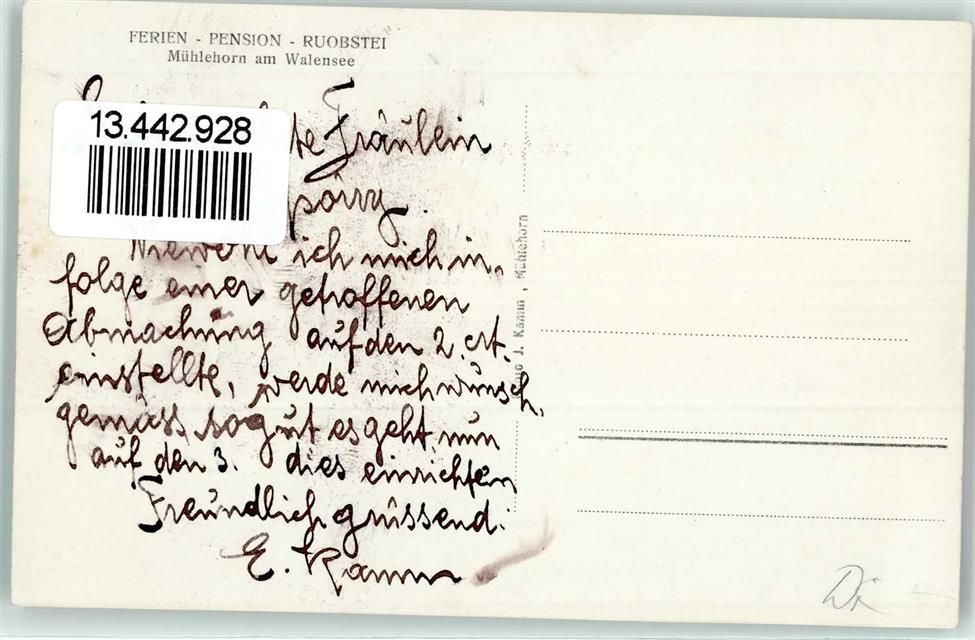 FERIEN - PENSION - RUOBSTEI
Mühlehorn am Walensee
13.442.928
te Fräulein
pörry.
Wiewohl ich mich in-
folge einer getroffenen
Abmachung auf den 2. crt.
einstellte, werde mich wunsch-
gemäss, so gut es geht nun
auf den 3. dies einrichten
Freundlich grüssend.
E. Kamm
J. Kamm, Mühlehorn